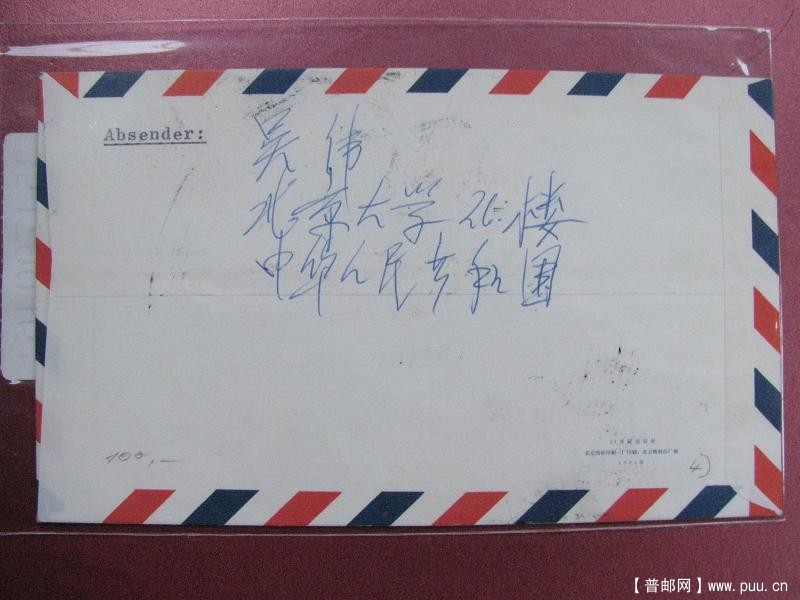 Absender:
吴伟
北京大学26楼
中华人民共和国
100,-
4)
【普邮网】www.puu.cn